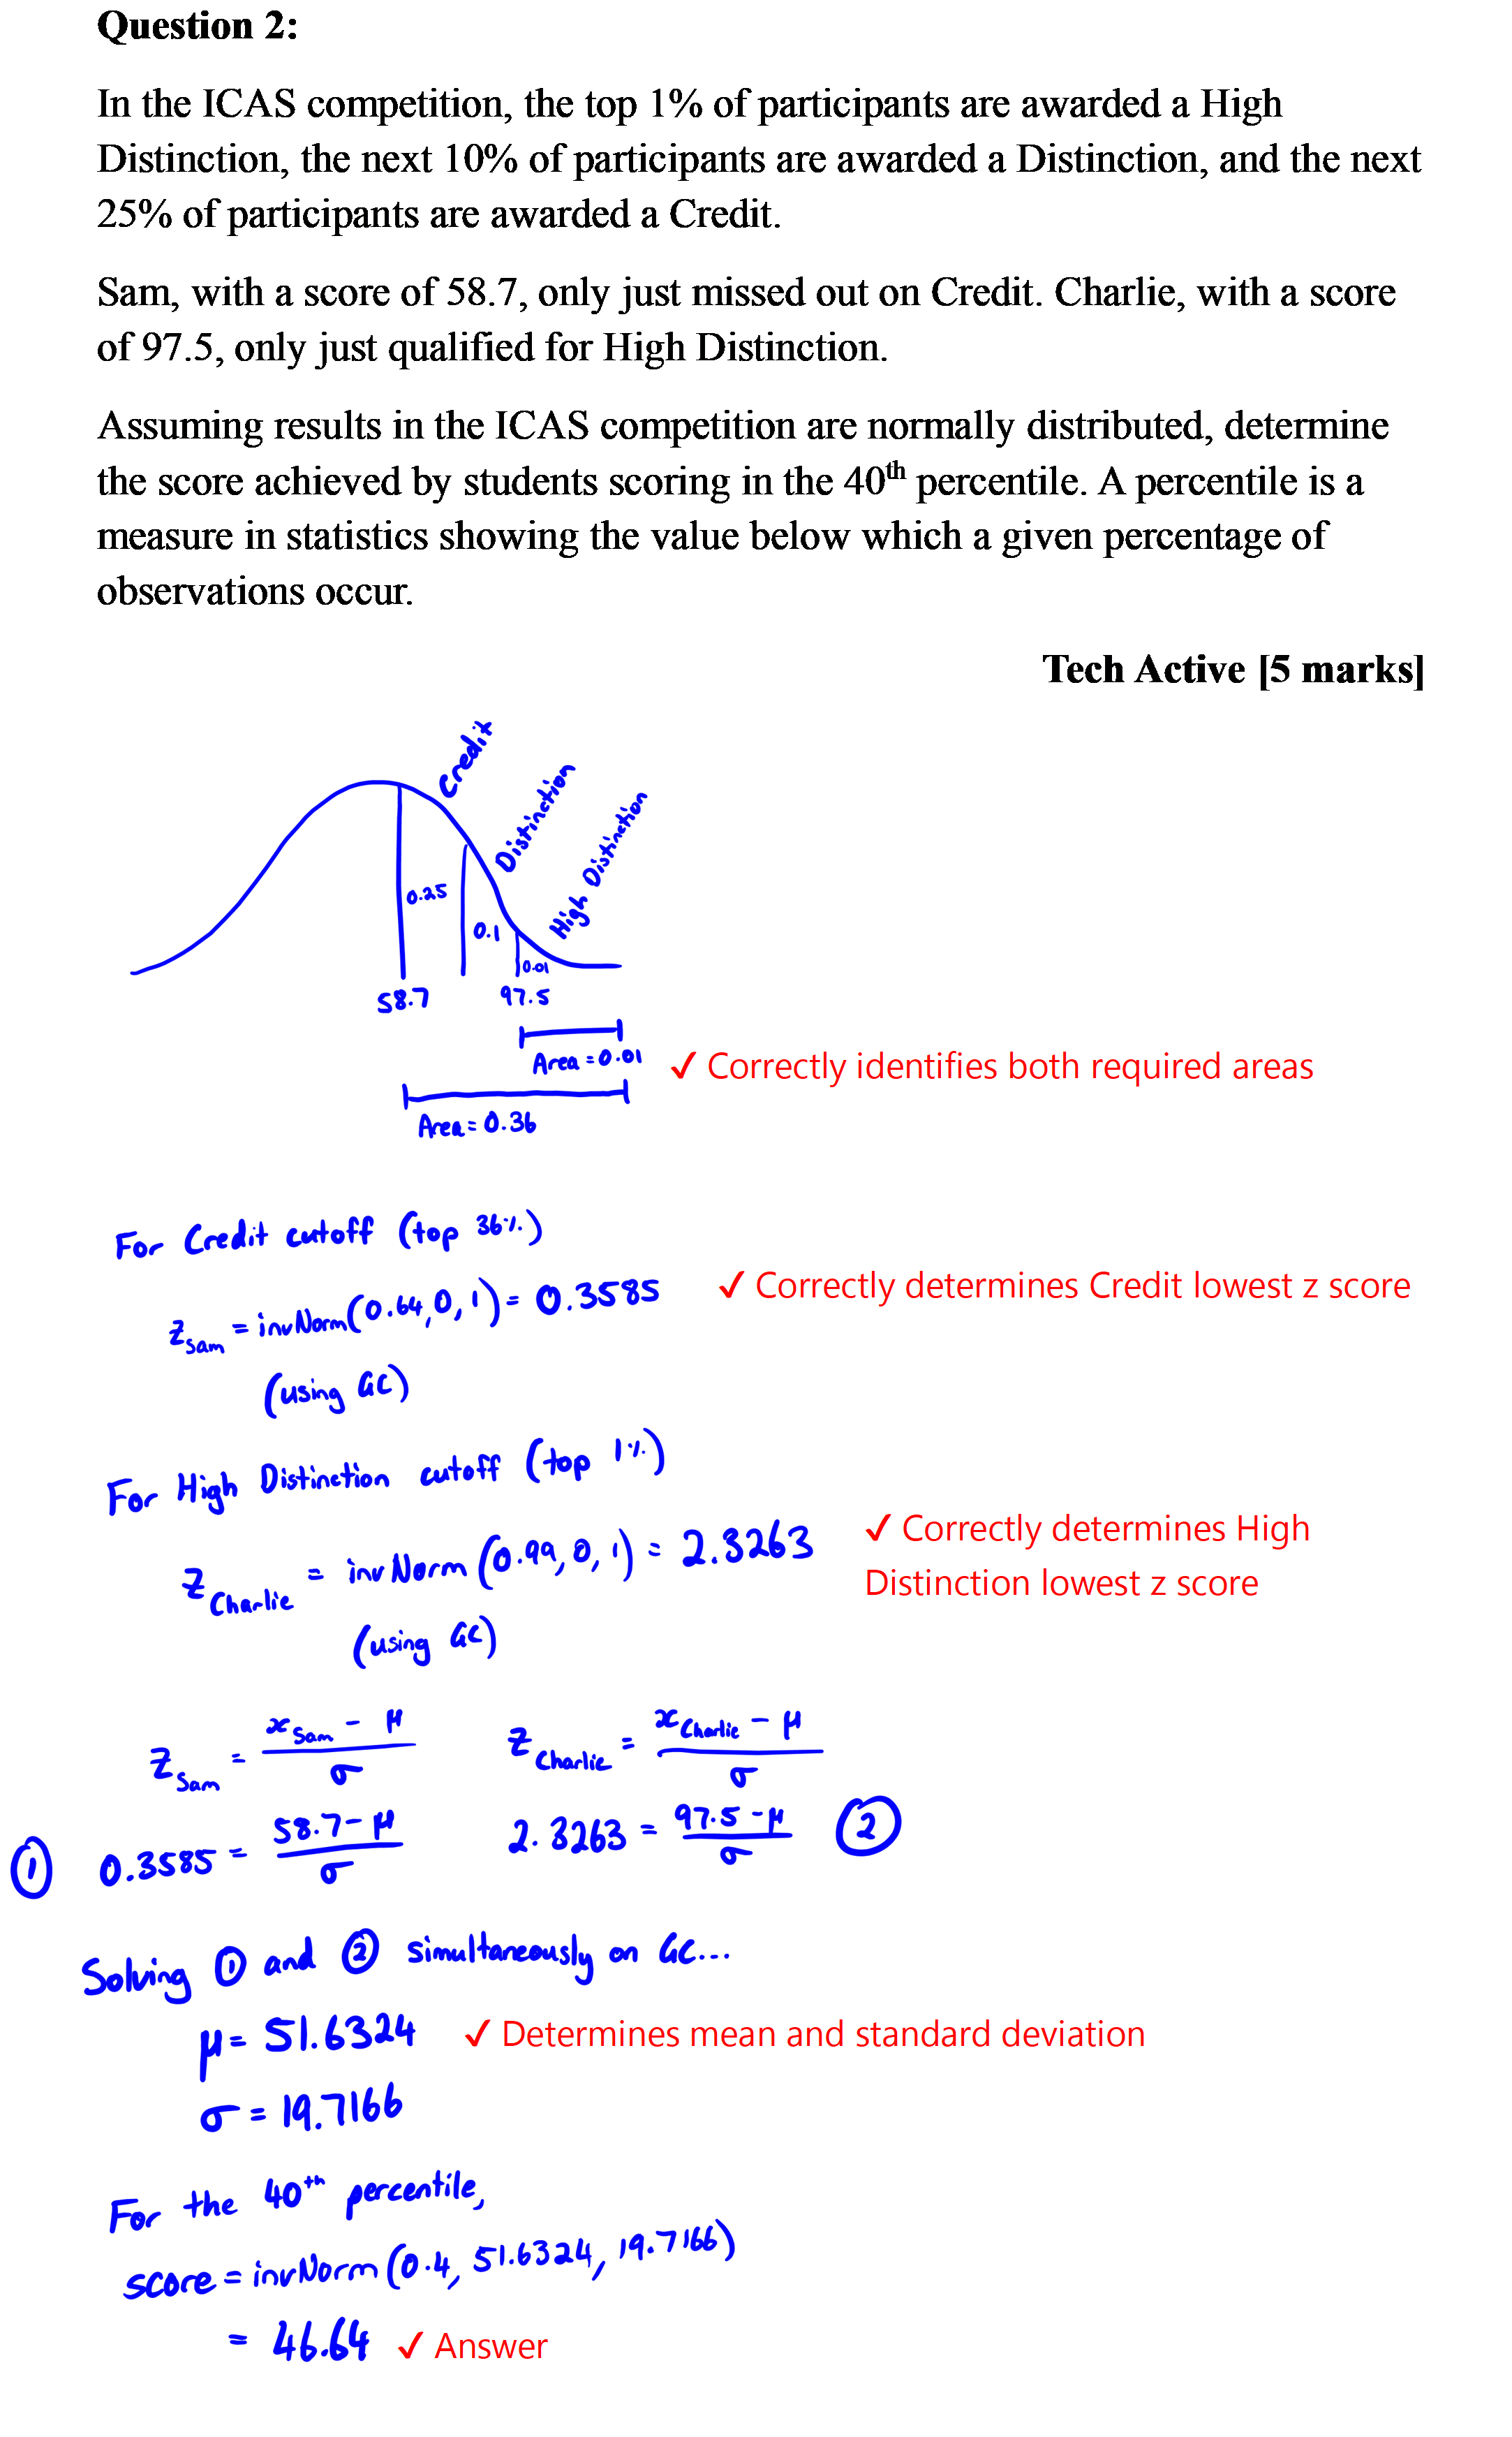 Question 2:
In the ICAS competition, the top 1% of participants are awarded a High
Distinction, the next 10% of participants are awarded a Distinction, and the next
25% of participants are awarded a Credit.
Sam, with a score of 58.7, only just missed out on Credit. Charlie, with a score
of 97.5, only just qualified for High Distinction.
Assuming results in the ICAS competition are normally distributed, determine
the score achieved by students scoring in the 40th percentile. A percentile is a
measure in statistics showing the value below which a given percentage of
observations occur.
Tech Active [5 marks]
Credit
Distinction
High Distinction
0.25
0.1
0.01
58.7
97.5
Area = 0.01
✓ Correctly identifies both required areas
Area = 0.36
For Credit cutoff (top 36%)
z Sam = invNorm(0.64, 0, 1) = 0.3585
✓ Correctly determines Credit lowest z score
(using GC)
For High Distinction cutoff (top 1%)
z Charlie = invNorm (0.99, 0, 1) = 2.3263
✓ Correctly determines High
Distinction lowest z score
(using GC)
z Sam = (x Sam − μ) / σ
z Charlie = (x Charlie − μ) / σ
① 0.3585 = (58.7 − μ) / σ
2.3263 = (97.5 − μ) / σ ②
Solving ① and ② simultaneously on GC...
μ = 51.6324
✓ Determines mean and standard deviation
σ = 19.7166
For the 40th percentile,
score = invNorm (0.4, 51.6324, 19.7166)
= 46.64
✓ Answer